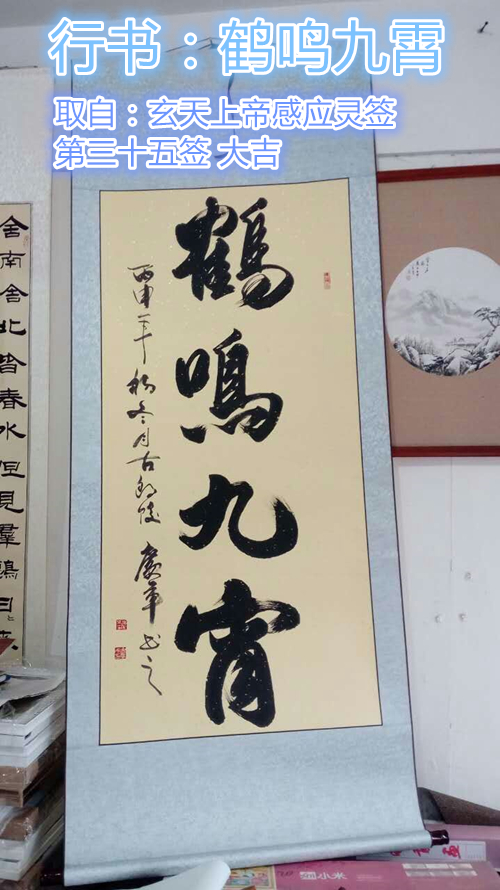 行书：鹤鸣九霄
取自：玄天上帝感应灵签
第三十五签 大吉
鶴鳴九宵
丙申年初冬月古
书之
舍南舍北皆春水但見羣鷗日
小米